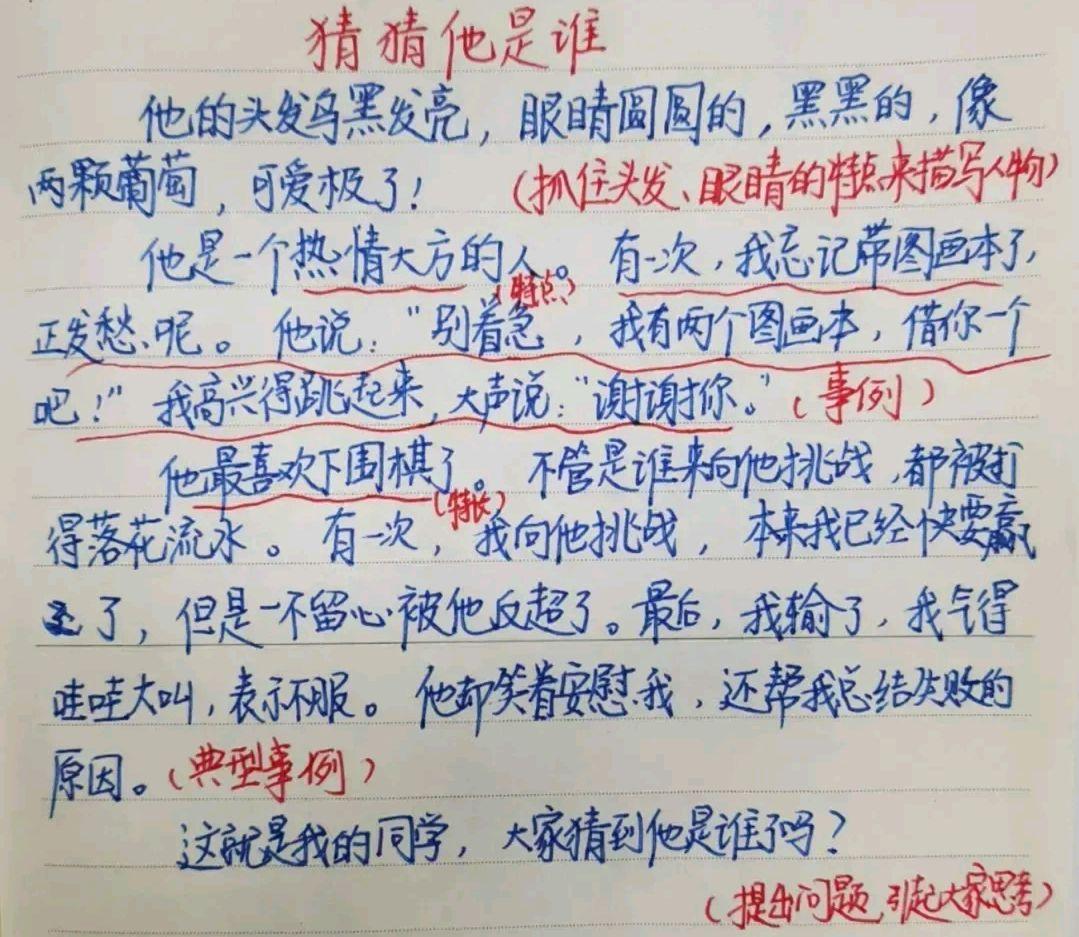 猜猜他是谁
他的头发乌黑发亮，眼睛圆圆的，黑黑的，像
两颗葡萄，可爱极了！（抓住头发、眼睛的特点来描写人物）
他是一个热情大方的人。有一次，我忘记带图画本了，
（特点）
正发愁呢。他说：“别着急，我有两个图画本，借你一个
吧！”我高兴得跳起来，大声说：“谢谢你。”（事例）
他最喜欢下围棋了。不管是谁来向他挑战，都被打
（特长）
得落花流水。有一次，我向他挑战，本来我已经快要赢
了，但是一不留心被他反超了。最后，我输了，我气得
哇哇大叫，表示不服。他却笑着安慰我，还帮我总结失败的
原因。（典型事例）
这就是我的同学，大家猜到他是谁了吗？
（提出问题，引起大家思考）